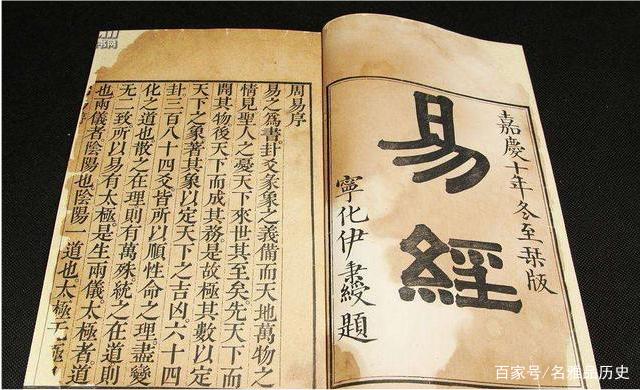 嘉慶十年冬至栞版
易經
寧化伊秉綬題
周易序
易之爲書卦爻彖象之義備而天地萬物之
情見聖人之憂天下來世其至矣先天下而
開其物後天下而成其務是故極其數以定
天下之象著其象以定天下之吉凶六十四
卦三百八十四爻皆所以順性命之理盡變
化之道也散之在理則有萬殊統之在道則
無二致所以易有太極是生兩儀太極者道
也兩儀者陰陽也陰陽一道也太極无極
百家号/名雅品历史